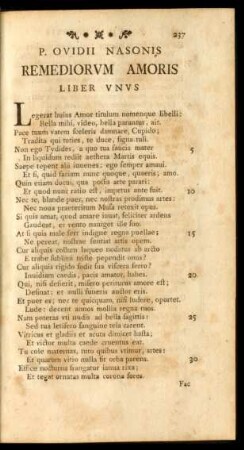 237
P. OVIDII NASONIS
REMEDIORVM AMORIS
LIBER VNVS
Legerat huius Amor titulum nomenque libelli:
Bella mihi, video, bella parantur, ait.
Parce tuum vatem sceleris damnare, Cupido;
Tradita qui toties, te duce, signa tuli.
Non ego Tydides, a quo tua saucia mater 5
In liquidum rediit aethera Martis equis.
Saepe tepent alii iuvenes: ego semper amavi.
Et si, quid faciam nunc quoque, quaeris; amo.
Quin etiam docui, qua posses arte parari:
Et quod nunc ratio est, impetus ante fuit. 10
Nec te, blande puer, nec nostras prodimus artes:
Nec nova praeteritum Musa retexit opus.
Si quis amat, quod amare iuvat, feliciter ardens
Gaudeat, et vento naviget ille suo.
At si quis male fert indignae regna puellae; 15
Ne pereat, nostrae sentiat artis opem.
Cur aliquis collum laqueo nodatus ab arcto
E trabe sublimi triste pependit onus?
Cur aliquis rigido fodit sua viscera ferro?
Invidiam caedis, pacis amator, habes. 20
Qui, nisi desierit, misero periturus amore est;
Desinat: et nulli funeris auctor eris.
Et puer es; nec te quicquam, nisi ludere, oportet.
Lude: decent annos mollia regna tuos.
Nam poteras uti nudis ad bella sagittis: 25
Sed tua letifero sanguine tela carent.
Vitricus et gladiis et acuta dimicet hasta;
Et victor multa caede cruentus eat.
Tu cole maternas, tuto quibus utimur, artes:
Et quarum vitio nulla fit orba parens. 30
Effice nocturna frangatur ianua rixa;
Et tegat ornatas multa corona fores.
Fac